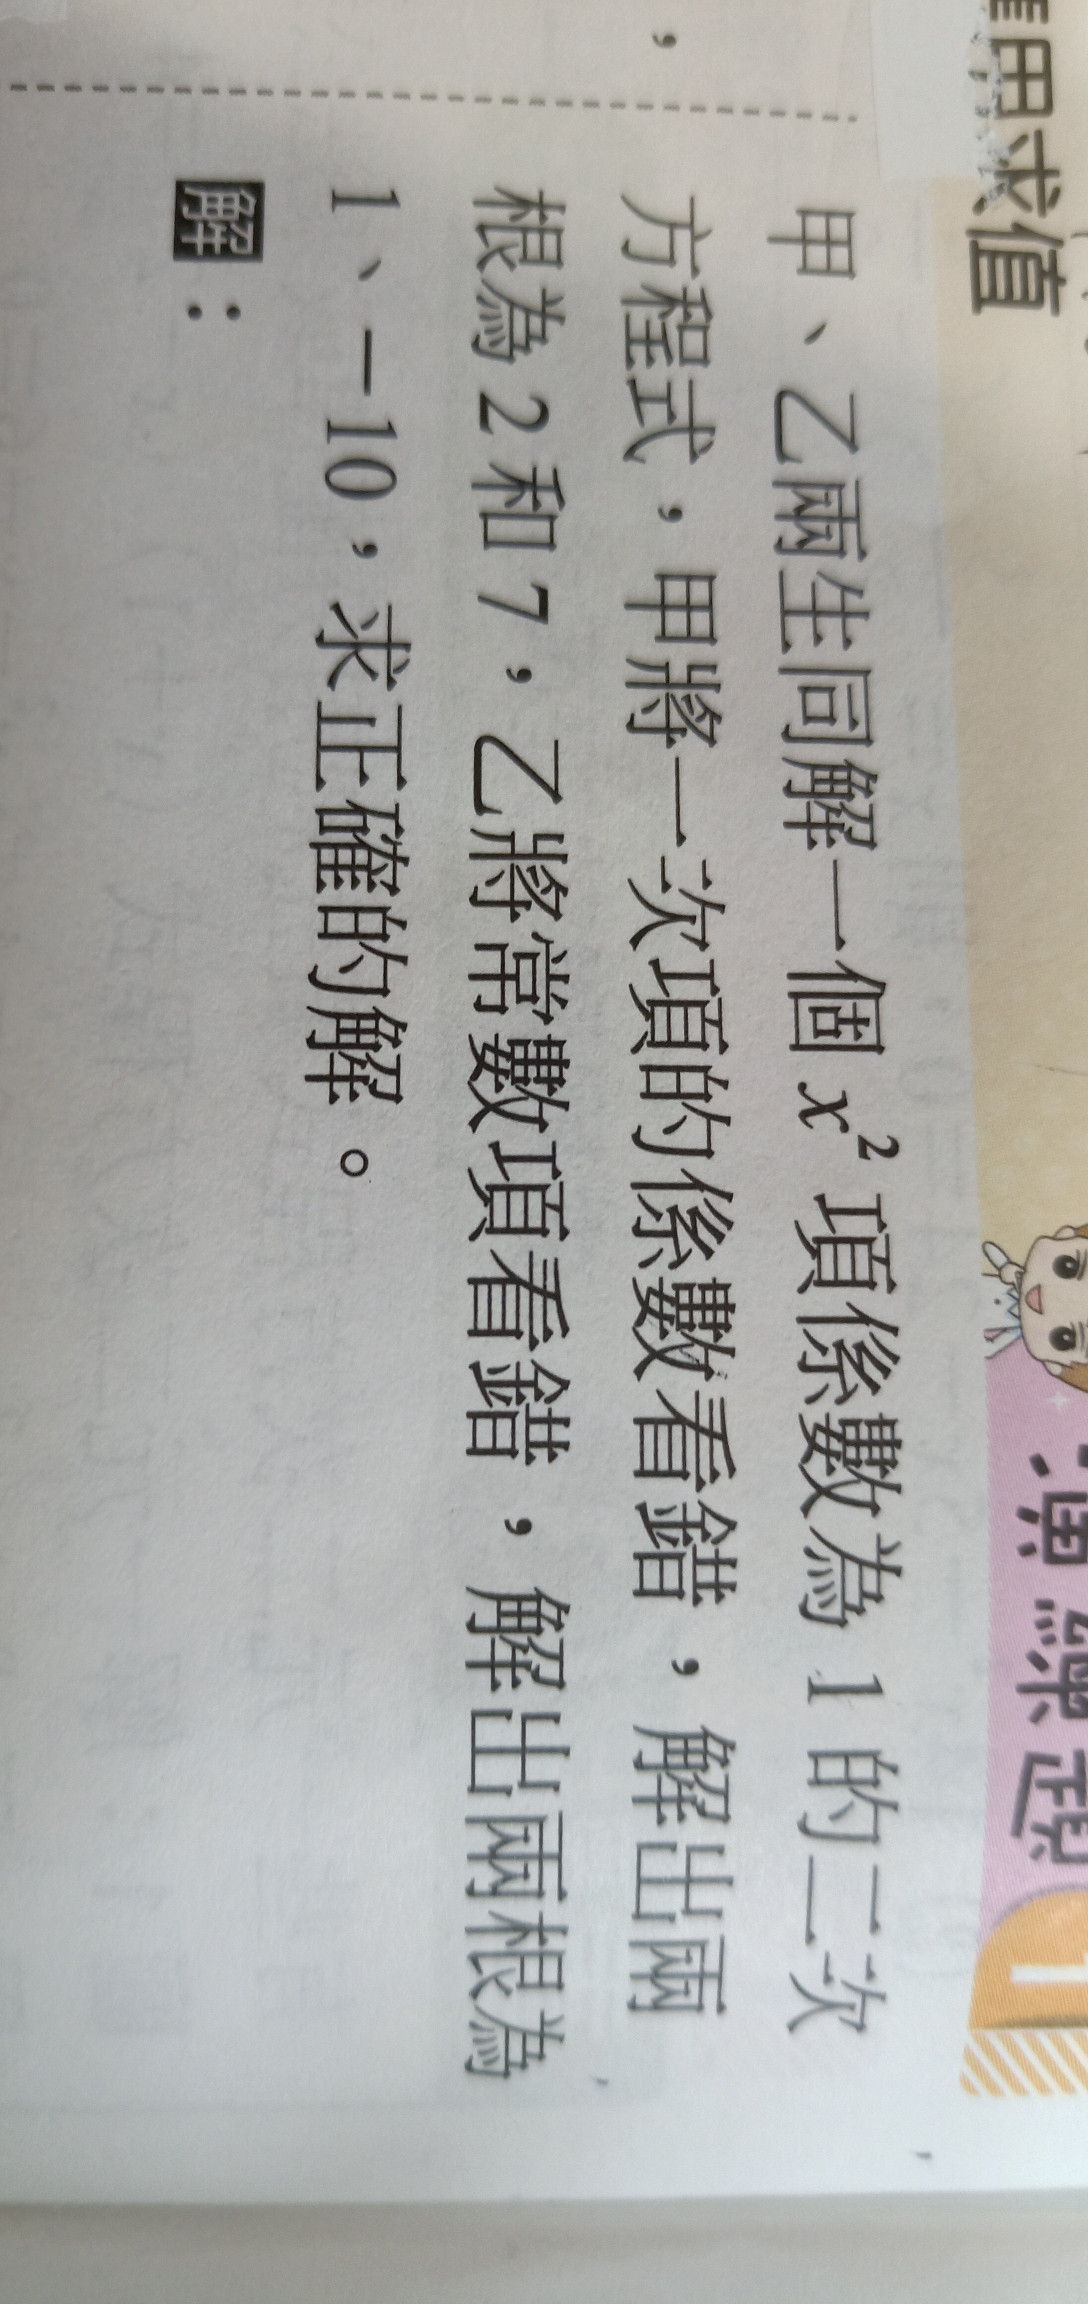 用求值
甲、乙兩生同解一個 x² 項係數為 1 的二次
方程式，甲將一次項的係數看錯，解出兩
根為 2 和 7，乙將常數項看錯，解出兩根為
1、−10，求正確的解。
解：